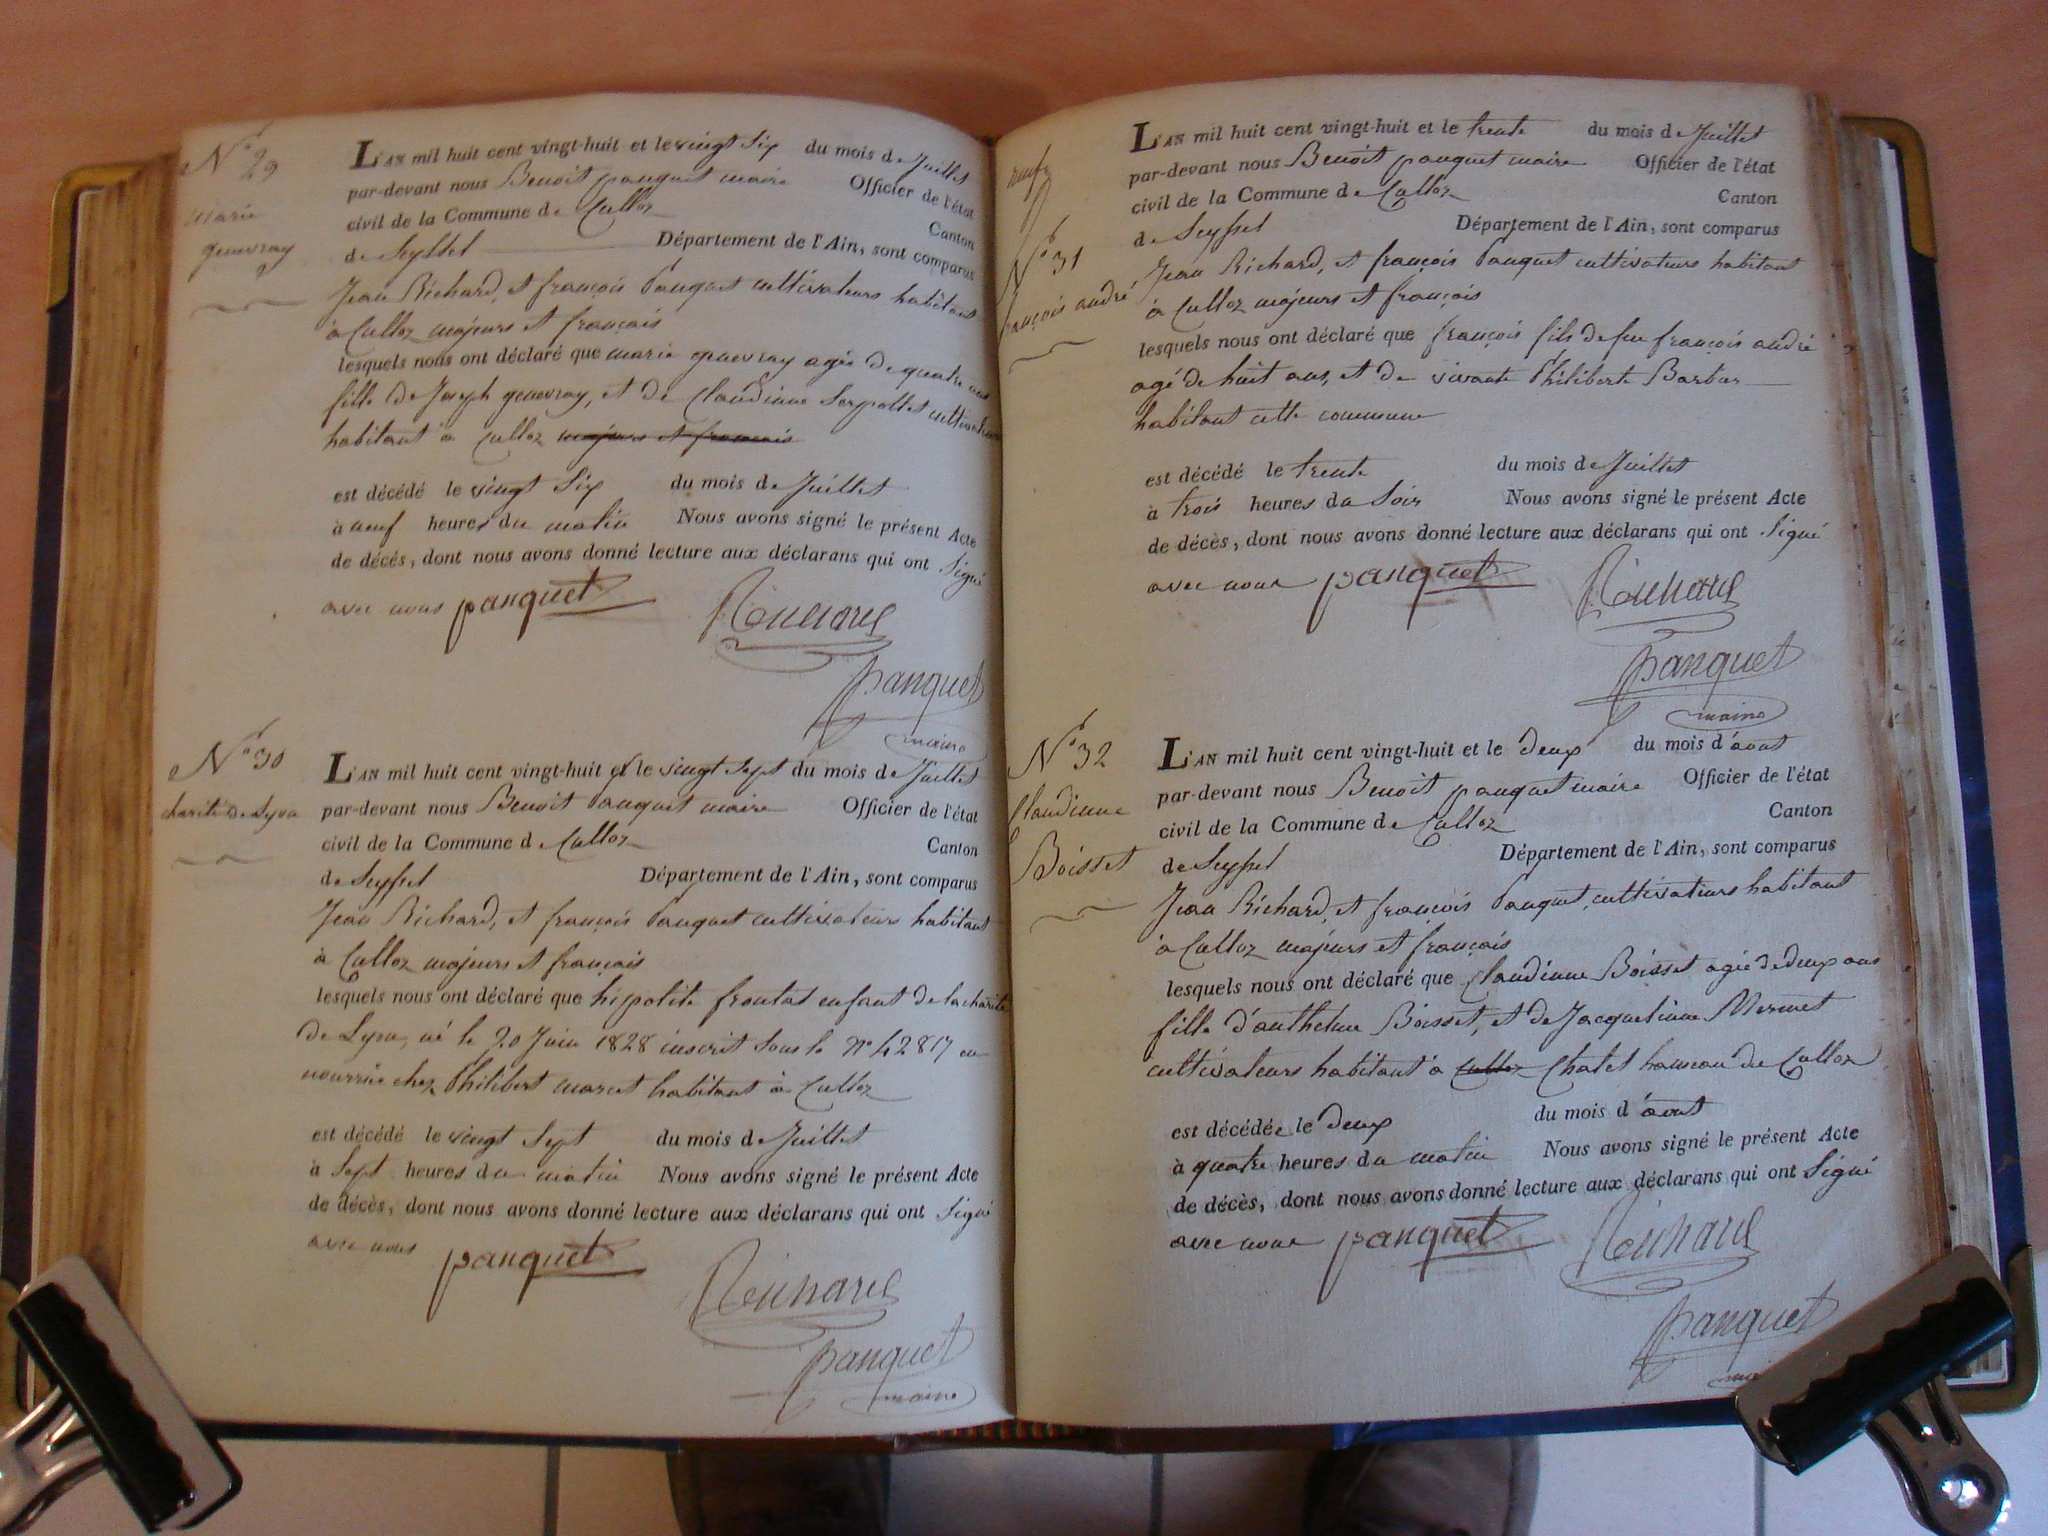 N° 29
marie
genevray
L'AN mil huit cent vingt-huit et le vingt Six du mois de Juillet
par-devant nous Benoit panquet maire Officier de l'état
civil de la Commune de Culloz Canton
de Seyssel Département de l'Ain, sont comparus
Jean Richard, et françois Panquet cultivateurs habitant
à Culloz majeurs et français
lesquels nous ont déclaré que marie genevray agée de quatre ans
fille de Joseph genevray, et de Claudinne Serpollet cultivateurs
habitant à Culloz majeurs et francais
est décédé le vingt Six du mois de Juillet
à neuf heures du matin Nous avons signé le présent Acte
de décés, dont nous avons donné lecture aux déclarans qui ont Signé
avec nous panquet Richard
panquet
maire
N° 30
charité de Lyon
L'AN mil huit cent vingt-huit et le vingt Sept du mois de Juillet
par-devant nous Benoit Panquet maire Officier de l'état
civil de la Commune de Culloz Canton
de Seyssel Département de l'Ain, sont comparus
Jean Richard, et françois Panquet cultivateurs habitant
à Culloz majeurs et français
lesquels nous ont déclaré que hippolite frontat enfant de la charité
de Lyon, né le 20 Juin 1828 inscrit sous le N° 42817 en
nourrice chez Philibert marcet habitant à Culloz
est décédé le vingt Sept du mois de Juillet
à Sept heures du matin Nous avons signé le présent Acte
de décès, dont nous avons donné lecture aux déclarans qui ont Signé
avec nous panquet
Richard
panquet
maire
N° 31
françois andré
L'AN mil huit cent vingt-huit et le trente du mois de Juillet
par-devant nous Benoit panquet maire Officier de l'état
civil de la Commune de Culloz Canton
de Seyssel Département de l'Ain, sont comparus
Jean Richard, et françois Panquet cultivateurs habitant
à Culloz majeurs et français
lesquels nous ont déclaré que françois fils de feu françois andré
agé de huit ans, et de vivante Philiberte Barbar
habitant cette commune
est décédé le trente du mois de Juillet
à trois heures du Soir Nous avons signé le présent Acte
de décès, dont nous avons donné lecture aux déclarans qui ont Signé
avec nous panquet Richard
panquet
maire
N° 32
Claudinne
Boisset
L'AN mil huit cent vingt-huit et le deux du mois d'aout
par-devant nous Benoit panquet maire Officier de l'état
civil de la Commune de Culloz Canton
de Seyssel Département de l'Ain, sont comparus
Jean Richard, et françois Panquet, cultivateurs habitant
à Culloz majeurs et français
lesquels nous ont déclaré que Claudinne Boisset agée de deux ans
fille d'anthelme Boisset, et de Jacquelinne Mermet
cultivateurs habitant à Culloz Chatel hameau de Culloz
est décédée le deux du mois d'aout
à quatre heures du matin Nous avons signé le présent Acte
de décès, dont nous avons donné lecture aux déclarans qui ont Signé
avec nous panquet Richard
panquet